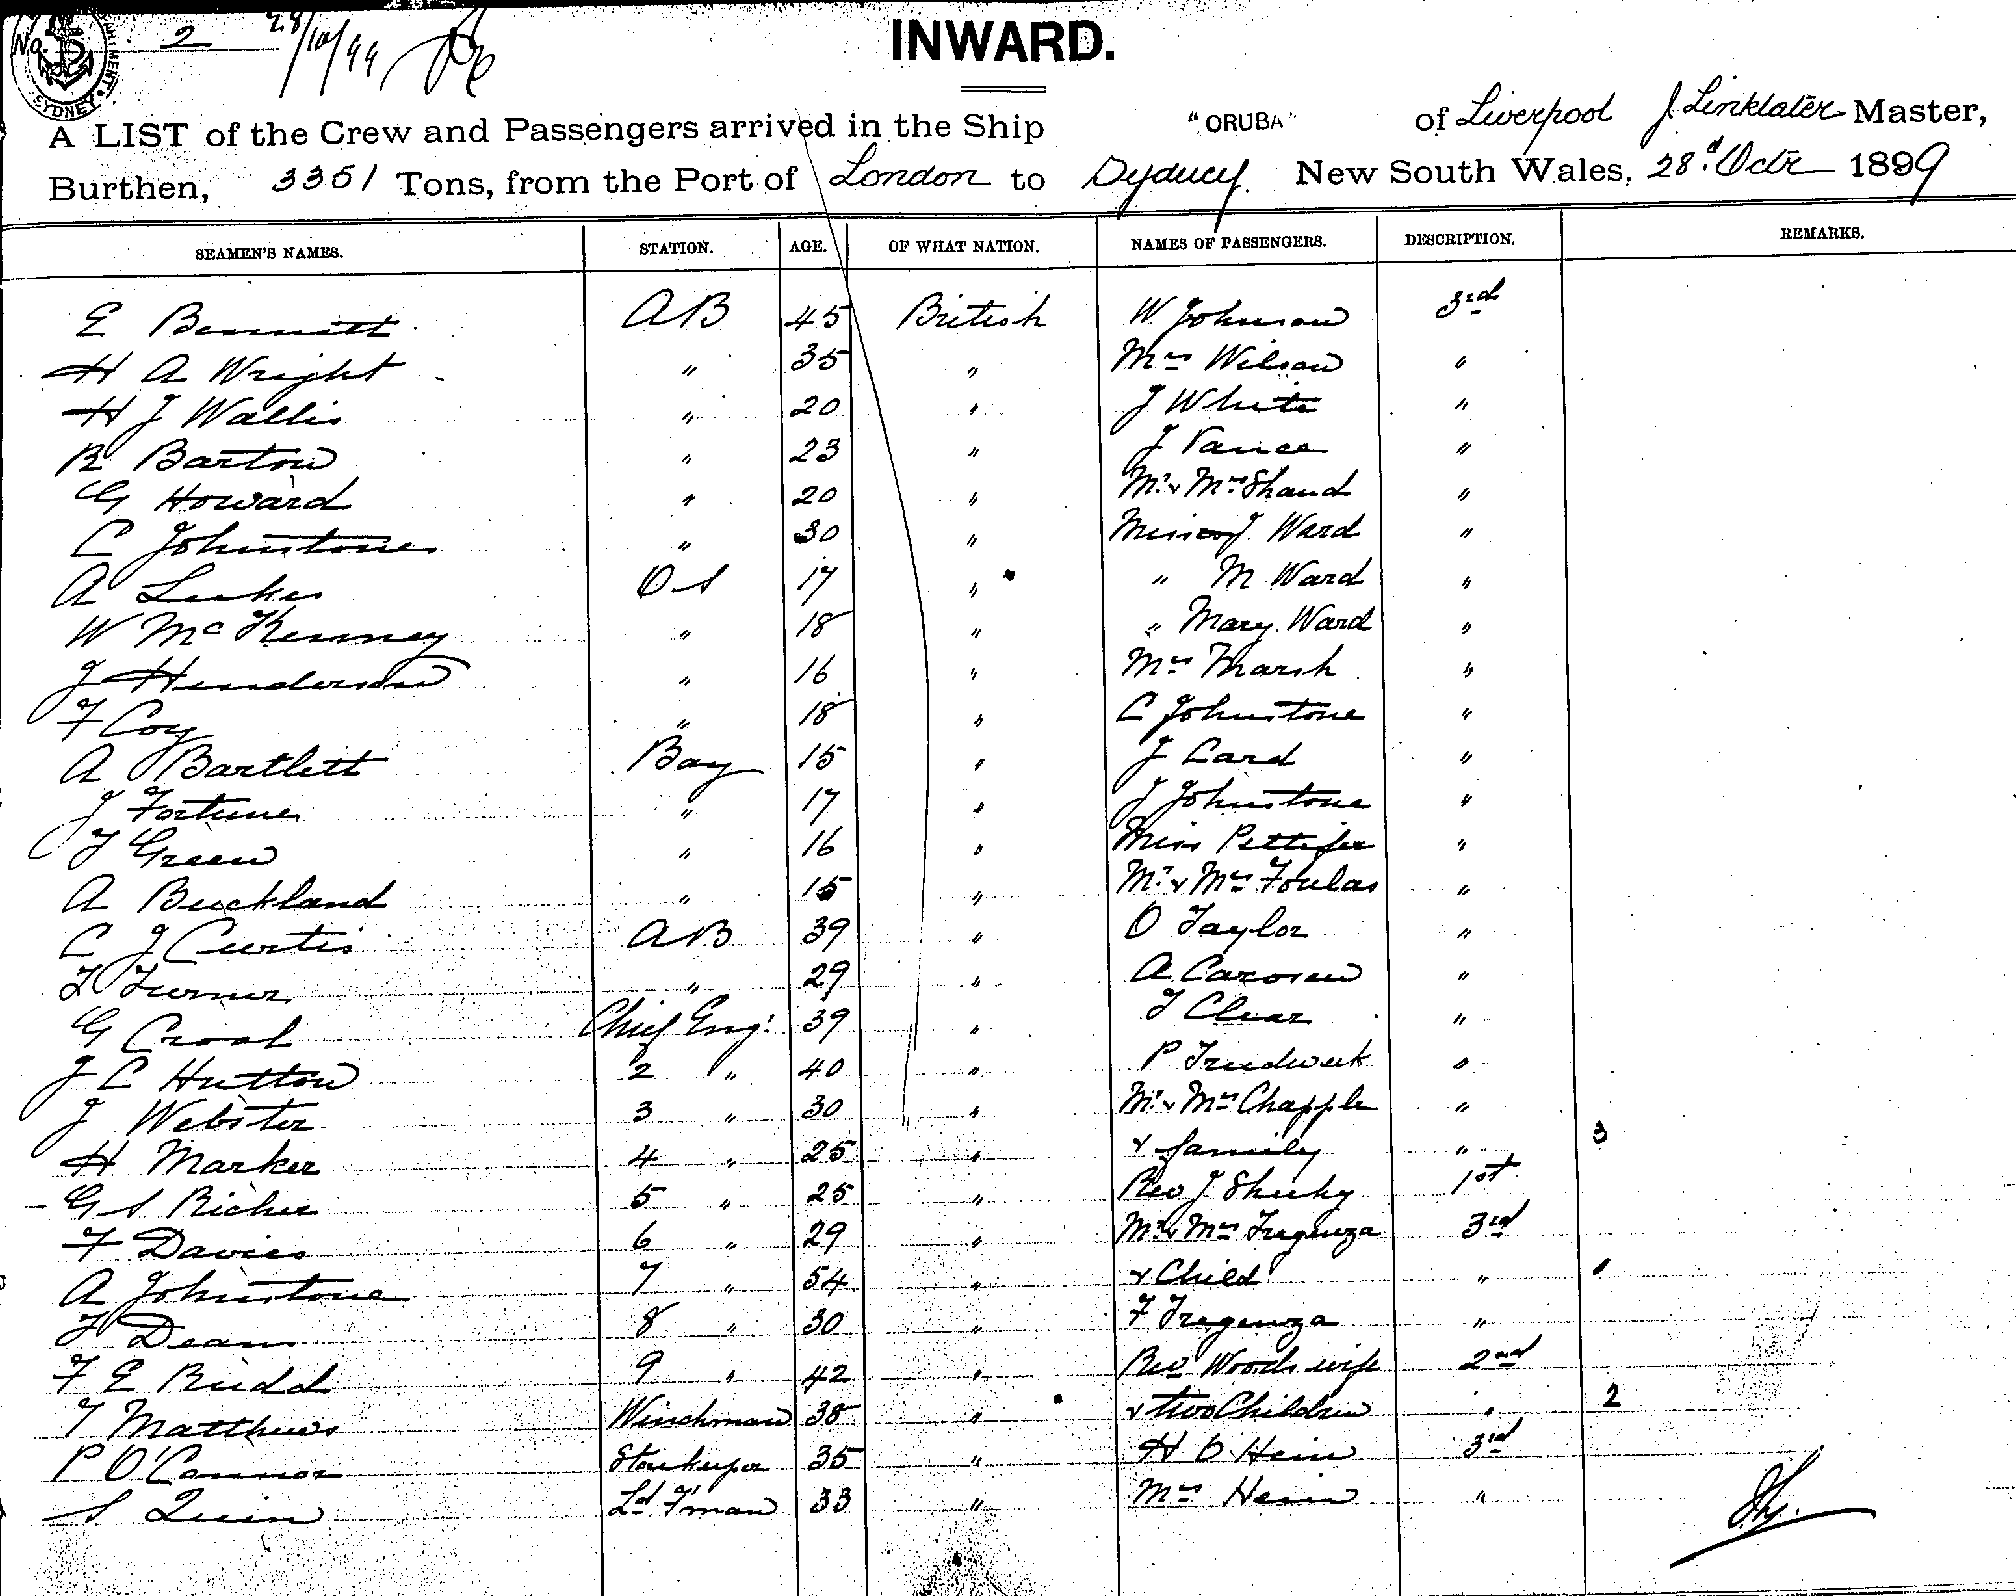 No. 2 28/10/99
SYDNEY
INWARD.
A LIST of the Crew and Passengers arrived in the Ship "ORUBA" of Liverpool J. Linklater Master,
Burthen, 3351 Tons, from the Port of London to Sydney. New South Wales, 28d. Octr 1899
SEAMEN'S NAMES. STATION. AGE. OF WHAT NATION. NAMES OF PASSENGERS. DESCRIPTION. REMARKS.
E Bennett AB 45 British W. Johnson 3rd
H A Wright " 35 " Mrs Wilson "
H J Wallis " 20 " J White "
R Barton " 23 " J Vance "
G Howard " 20 " Mr & Mrs Shand "
C Johnstone " 30 " Misses J. Ward "
A Luker OS 17 " " M Ward "
W McKenney " 18 " " Mary Ward "
J Henderson " 16 " Mrs Marsh "
F Coy " 18 " C Johnstone "
A Bartlett Boy 15 " J Card "
J Fortune " 17 " J Johnstone "
T Green " 16 " Miss Pettifer "
A Buckland " 15 " Mr & Mrs Foulas "
C J Curtis AB 39 " O Taylor "
T Turner " 29 " A Carosew "
G Croal Chief Eng: 39 " T Clear "
J C Hutton 2 " 40 " P Trudweek "
J Webster 3 " 30 " Mr & Mrs Chapple "
H Marker 4 " 25 " & family " 3
G S Richer 5 " 25 " Rev J Sheehy 1st
F Davies 6 " 29 " Mr & Mrs Tregenza 3rd
A Johnstone 7 " 54 " & Child " 1
T Dean 8 " 30 " F Tregenza "
F E Rudd 9 " 42 " Rev Woods wife 2nd
T Matthews Winchman 38 " & two Children " 2
P O'Connor Storekeeper 35 " H O Hein 3rd
S Quin Ld F'man 33 " Mrs Hein "